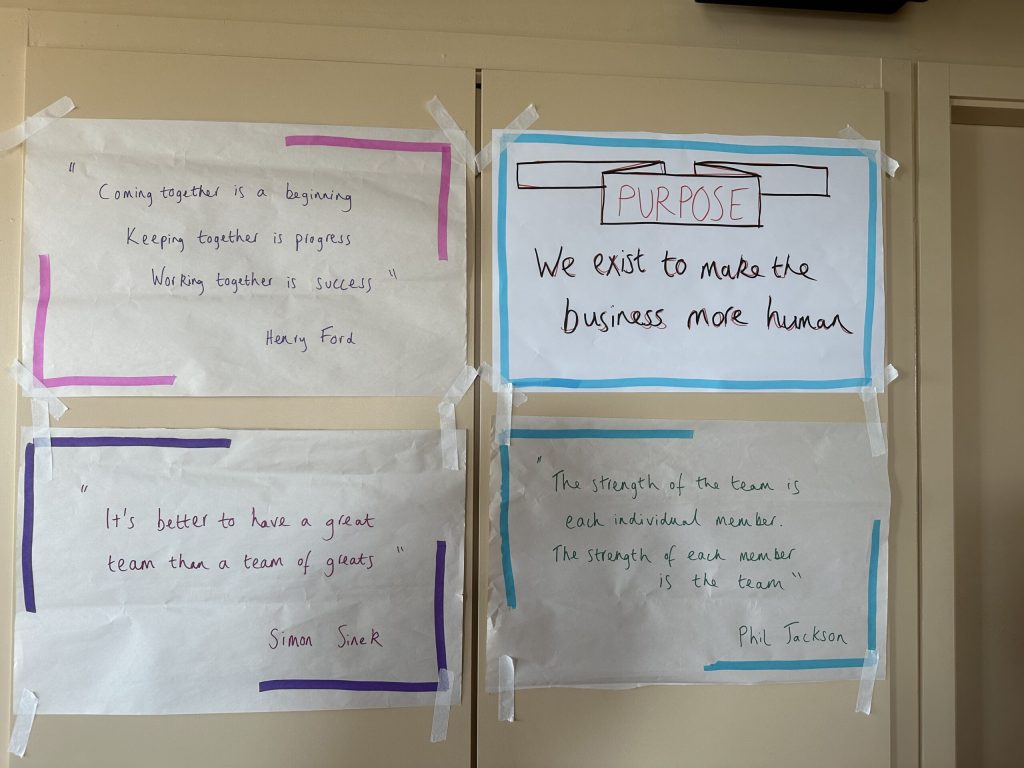 " Coming together is a beginning
Keeping together is progress
Working together is success "
Henry Ford
PURPOSE
We exist to make the
business more human
"
It's better to have a great
team than a team of greats "
Simon Sinek
" The strength of the team is
each individual member.
The strength of each member
is the team "
Phil Jackson